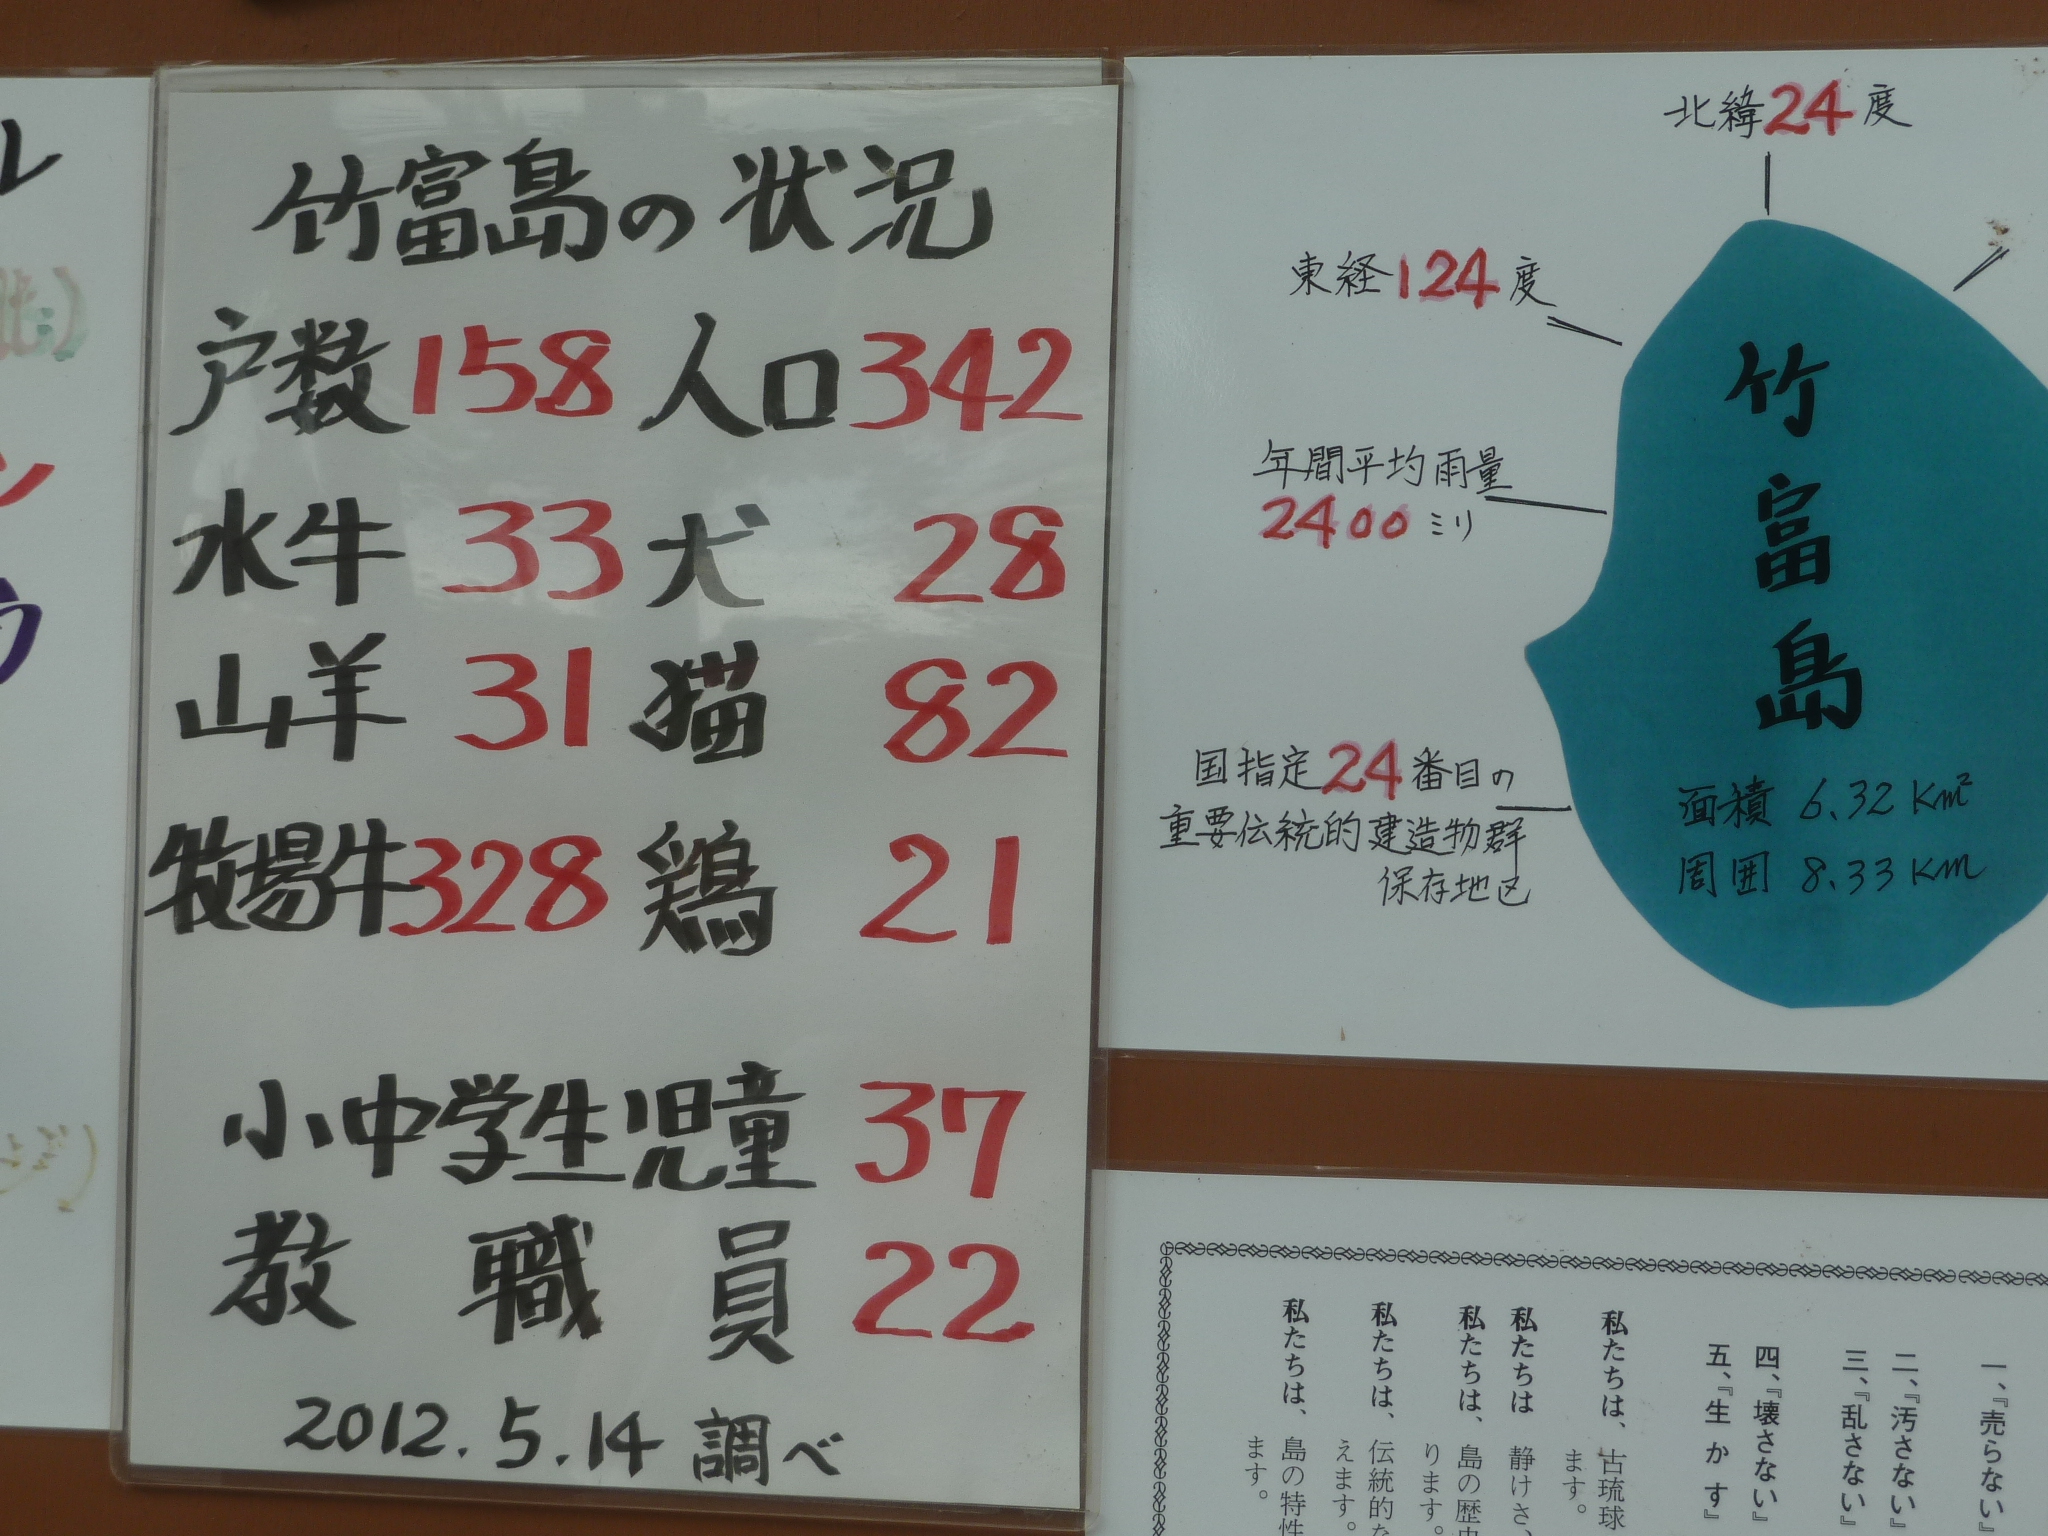 竹富島の状況
戸数 158 人口 342
水牛 33 犬 28
山羊 31 猫 82
牧場牛 328 鶏 21
小中学生児童 37
教職員 22
2012.5.14 調べ
北緯24度
東経124度
年間平均雨量
2400ミリ
国指定24番目の
重要伝統的建造物群
保存地区
竹富島
面積 6.32 Km²
周囲 8.33 Km
一、『売らない』
二、『汚さない』
三、『乱さない』
四、『壊さない』
五、『生かす』
私たちは、古琉球
ます。
私たちは 静けさ、
私たちは、島の歴史
ります。
私たちは、伝統的な
えます。
私たちは、島の特性
ます。